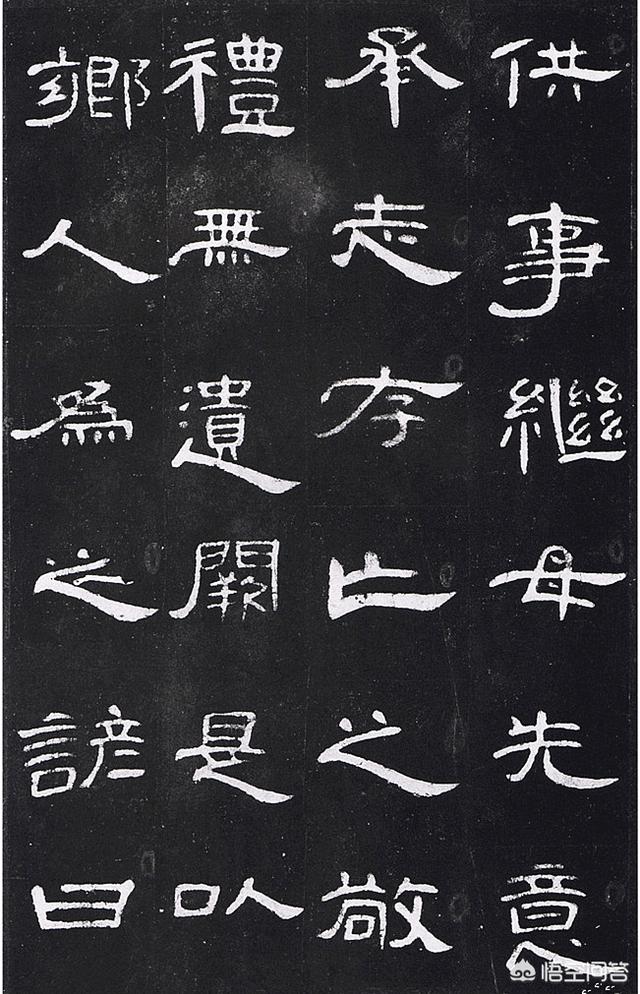 供事繼母先意
承志存亡之敬
禮無遺闕是以
鄉人為之諺曰
悟空问答